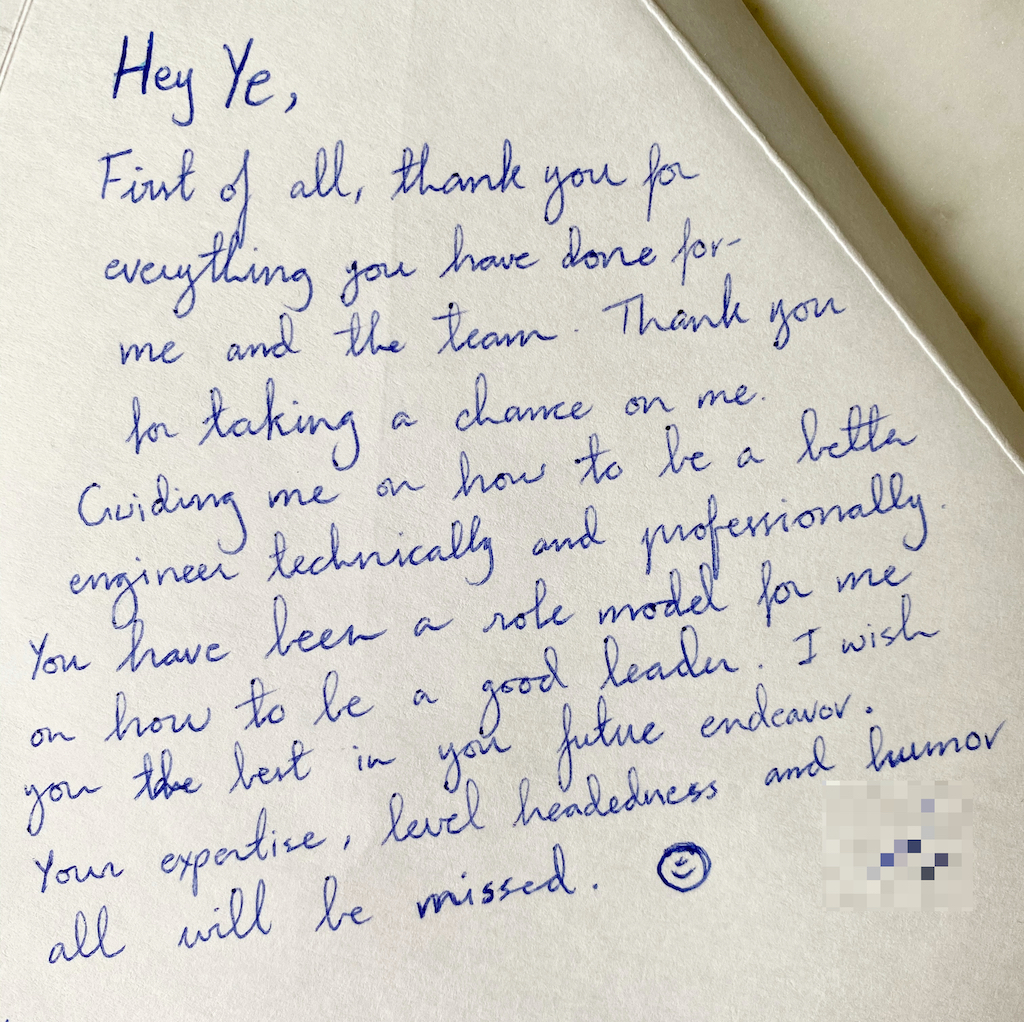 Hey Ye,
First of all, thank you for
everything you have done for
me and the team. Thank you
for taking a chance on me.
Guiding me on how to be a better
engineer technically and professionally.
You have been a role model for me
on how to be a good leader. I wish
you the best in you future endeavor.
Your expertise, level headedness and humor
all will be missed.